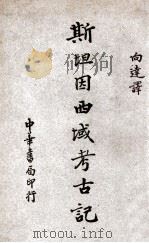 向達譯
斯坦因西域考古記
中華書局印行
www.duxiu.com